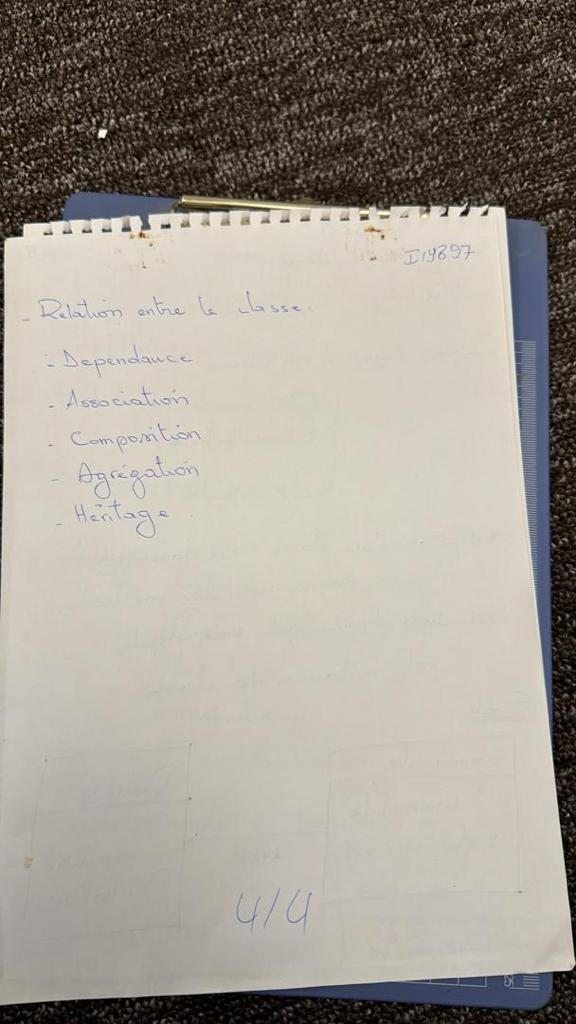 I19897
- Relation entre le classe:
- Dependance
- Association
- Composition
- Agrégation
- Héritage
4/4